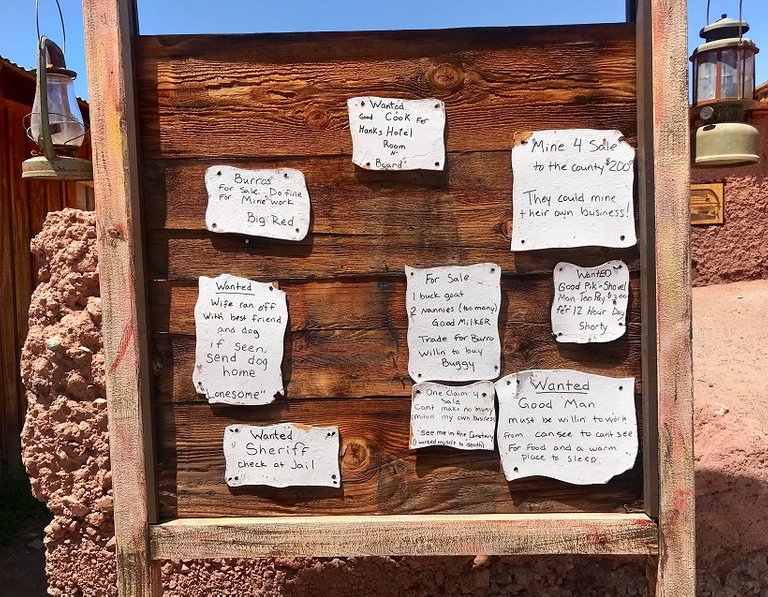 Wanted
Good Cook For
Hanks Hotel
Room
N
Board
Mine 4 Sale
to the county $200
They could mine
their own business!
Burros
For Sale. Do fine
for Mine work
Big Red
Wanted
Wife ran off
with best friend
and dog
if seen,
send dog
home
"Lonesome"
For Sale
1 buck goat
2 Nannies (too many)
Good MilKER
Trade for Burro
Willin to buy
Buggy
Wanted
Good Pik-Shovel
Man-Too Pay $3.00
for 12 Hour Day
Shorty
One Claim 4
Sale
Cant make no money
minin my own business
See me in the Cemetery
(I worked myself to death)
Wanted
Good Man
must be willin to work
from can see to cant see
For food and a warm
place to sleep
Wanted
Sheriff
check at Jail